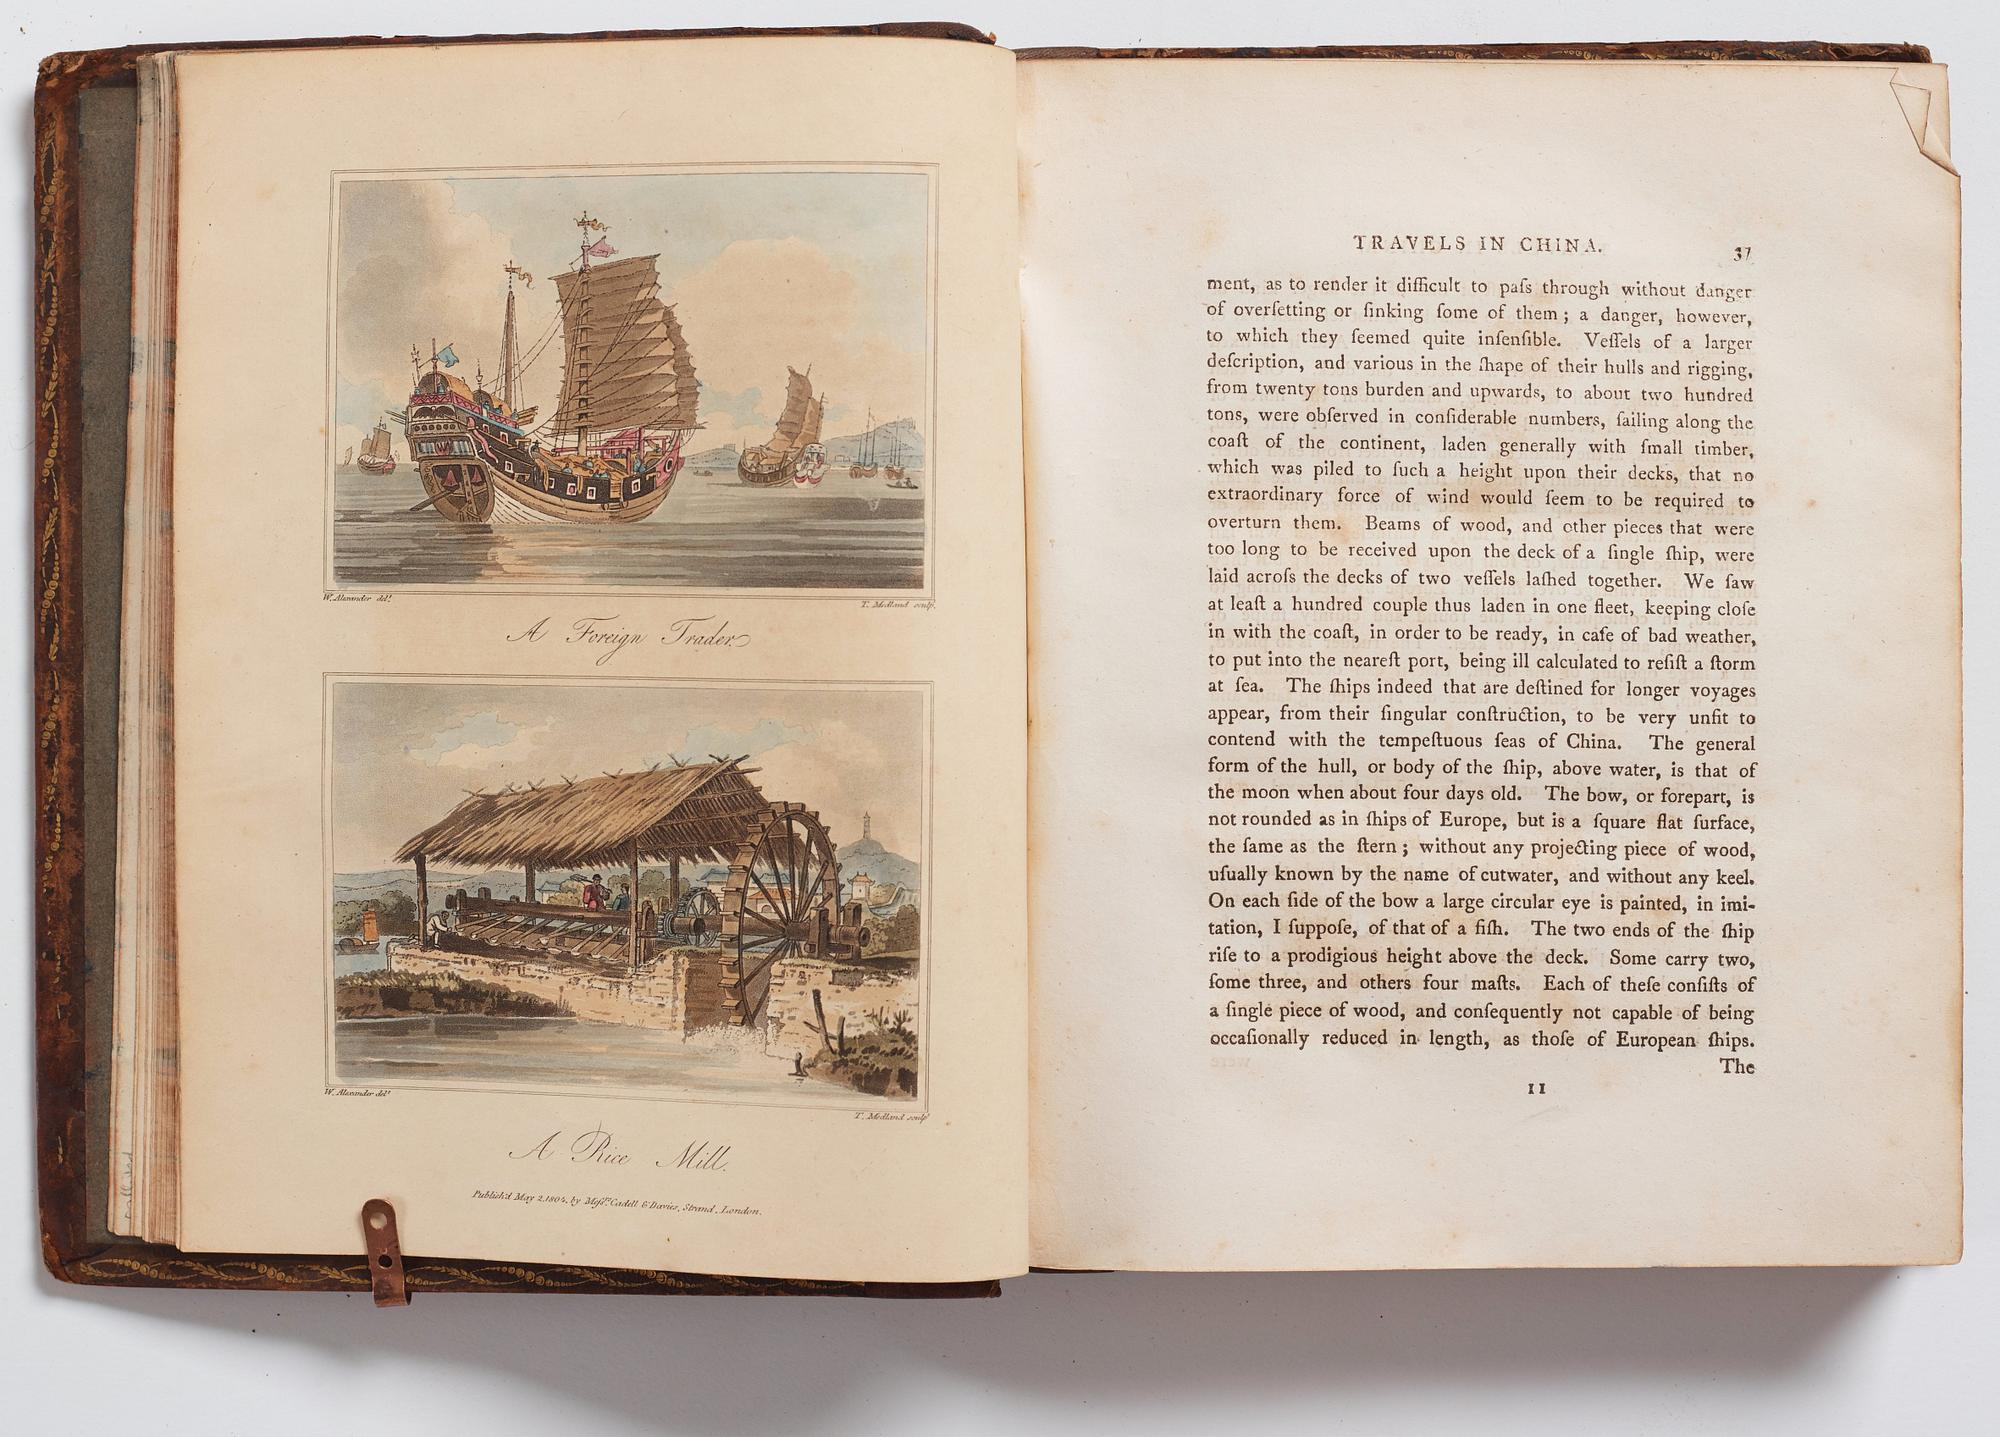 W. Alexander delt.
T. Medland sculp.
A Foreign Trader.
W. Alexander delt.
T. Medland sculpt.
A Rice Mill.
Publish'd May 2, 1804, by Messrs. Cadell & Davies, Strand, London.
TRAVELS IN CHINA.
37
ment, as to render it difficult to paſs through without danger
of overſetting or ſinking ſome of them; a danger, however,
to which they ſeemed quite inſenſible. Veſſels of a larger
deſcription, and various in the ſhape of their hulls and rigging,
from twenty tons burden and upwards, to about two hundred
tons, were obſerved in conſiderable numbers, ſailing along the
coaſt of the continent, laden generally with ſmall timber,
which was piled to ſuch a height upon their decks, that no
extraordinary force of wind would ſeem to be required to
overturn them. Beams of wood, and other pieces that were
too long to be received upon the deck of a ſingle ſhip, were
laid acroſs the decks of two veſſels laſhed together. We ſaw
at leaſt a hundred couple thus laden in one fleet, keeping cloſe
in with the coaſt, in order to be ready, in caſe of bad weather,
to put into the neareſt port, being ill calculated to reſiſt a ſtorm
at ſea. The ſhips indeed that are deſtined for longer voyages
appear, from their ſingular conſtruction, to be very unfit to
contend with the tempeſtuous ſeas of China. The general
form of the hull, or body of the ſhip, above water, is that of
the moon when about four days old. The bow, or forepart, is
not rounded as in ſhips of Europe, but is a ſquare flat ſurface,
the ſame as the ſtern; without any projecting piece of wood,
uſually known by the name of cutwater, and without any keel.
On each ſide of the bow a large circular eye is painted, in imi-
tation, I ſuppoſe, of that of a fiſh. The two ends of the ſhip
riſe to a prodigious height above the deck. Some carry two,
ſome three, and others four maſts. Each of theſe conſiſts of
a ſingle piece of wood, and conſequently not capable of being
occaſionally reduced in length, as thoſe of European ſhips.
The
II